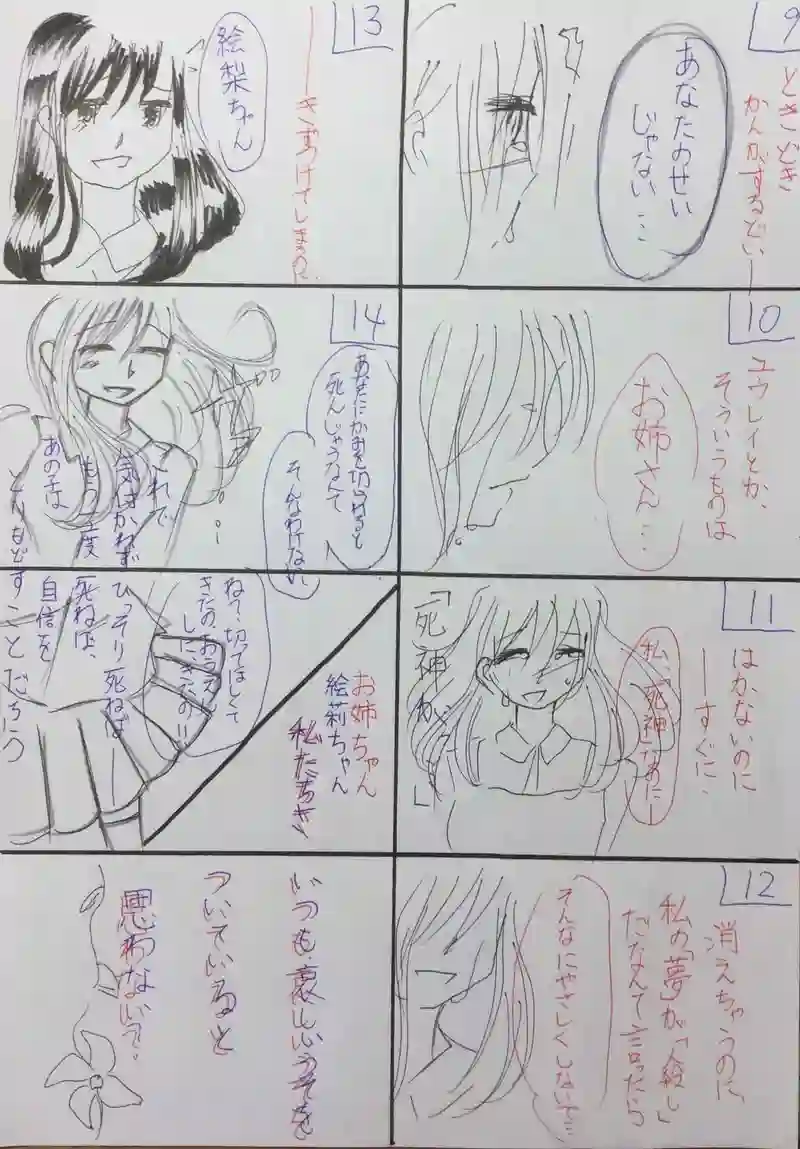 9
ときどき
かんがするどい―
あなたのせい
じゃない…
10
ユウレイとか、
そういうものは
お姉さん…
11
はかないのに
―すぐに・
私、「死神」なのに―
「死神が、
」
12
消えちゃうのに、
私の「夢」が「人殺し」
だなんて言ったら
そんなにやさしくしないで…
13
―きずつけてしまうのに、
絵梨ちゃん
14
あなたにかみを切られると
死んじゃうなんて
そんなわけない
これで
気はかねず
もう一度
あの子は
とりもどすことだろう
ね?切ってほしくて
きたの。おうえん
したいの!!
ひっそり死ねば―
死ねば、
自信を
お姉ちゃん
絵莉ちゃん
私たちさ
いつも哀しいうそを
ついていると
思わない?